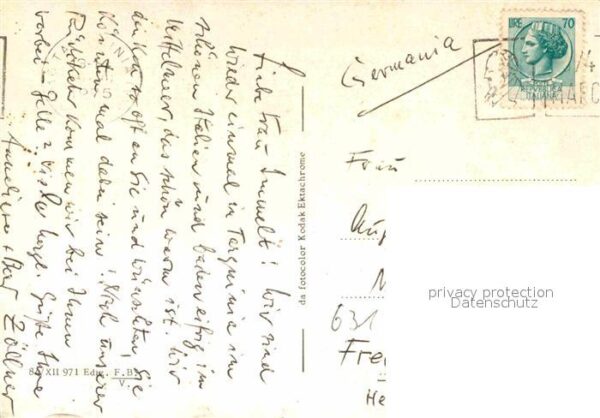 Liebe Frau Immelt! Wir sind
wieder einmal in Tarquinia im
schönen Italien und baden eifrig im
Mittelmeer, das schön warm ist. Wir
denken so oft an Sie und wünschten, Sie
könnten mal dabei sein! Nach unserer
Rückkehr kommen wir bei Ihnen
vorbei – Gelle? Viele herzl. Grüße Ihre
Anneliese + Bert Zöllner
da fotocolor Kodak Ektachrome
8 XII 971 Ediz. F.B.
V.
Germania
LIRE 70
REPVBBLICA
ITALIANA
Frau
Aug
M
631
Frei
He
privacy protection
Datenschutz